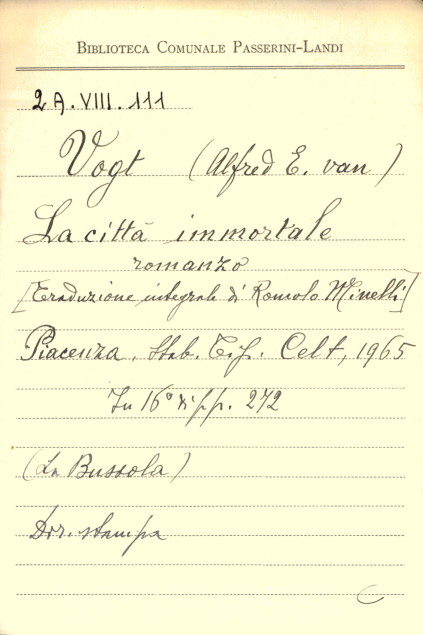 BIBLIOTECA COMUNALE PASSERINI-LANDI
2A.VIII.111
Vogt (Alfred E. van)
La città immortale
romanzo
[Traduzione integrale di Romolo Minelli]
Piacenza, Stab. Tip. Celt, 1965
In 16° di pp. 272
(La Bussola)
Dir. stampa
C